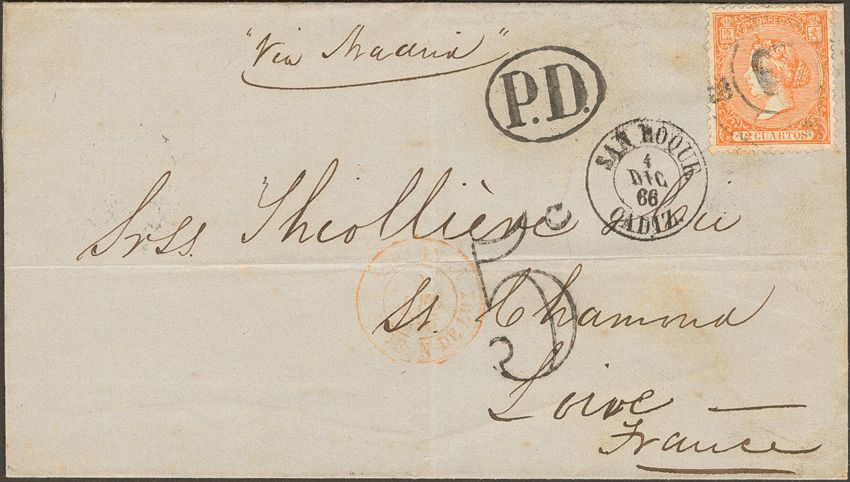 "Via Madrid"
P.D.
CORREOS
12 CUARTOS
SAN ROQUE
4
DIC
66
CADIZ.
Srss. Thiollière
5
St. Chamond
Loire
France